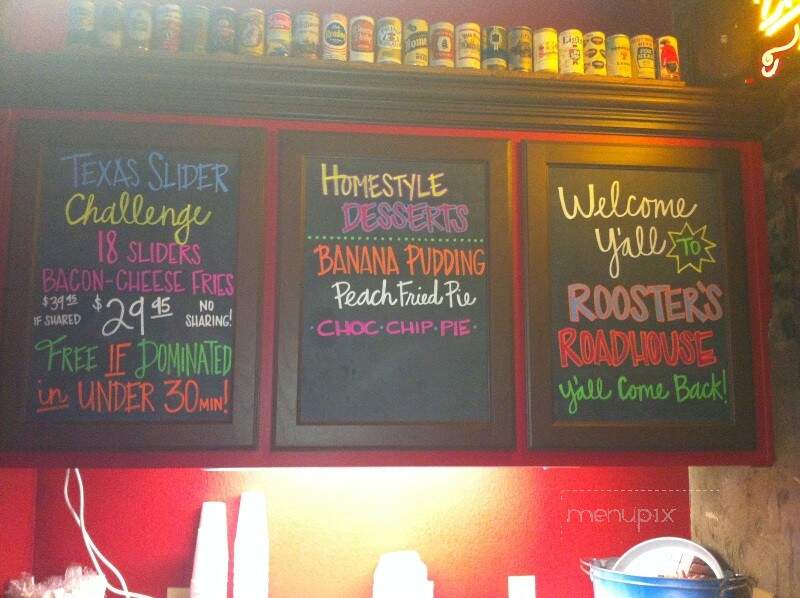 TEXAS SLIDER
Challenge
18 SLIDERS
BACON-CHEESE FRIES
$39.95 IF SHARED
$29.95
NO SHARING!
FREE IF DOMINATED
in UNDER 30 MIN!
HOMESTYLE
DESSERTS
BANANA PUDDING
Peach Fried Pie
·CHOC·CHIP·PIE·
Welcome
Y'all TO
ROOSTER'S
ROADHOUSE
y'all Come Back!
menupix